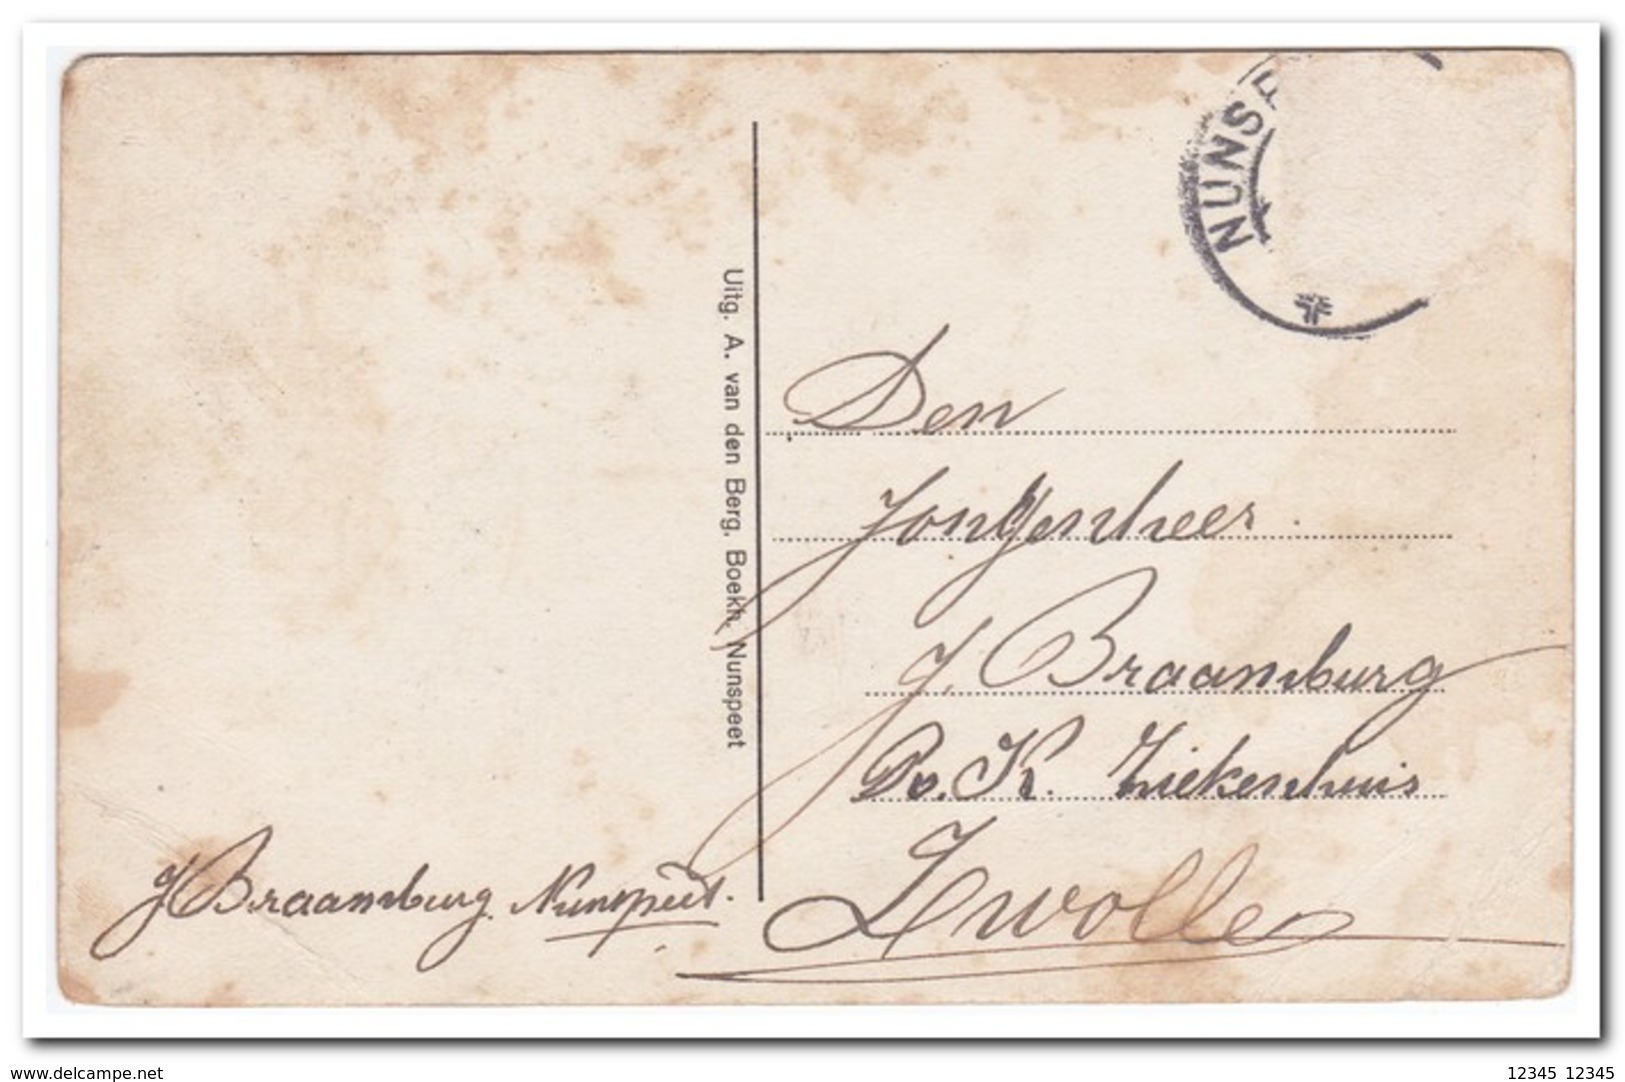 NUNSP
Uitg. A. van den Berg. Boekh. Nunspeet
Den
Jongenheer.
J. Braamburg
R. K. Ziekenhuis
Zwolle
J Braamburg Nunspeet.
delcampe.net
12345 12345